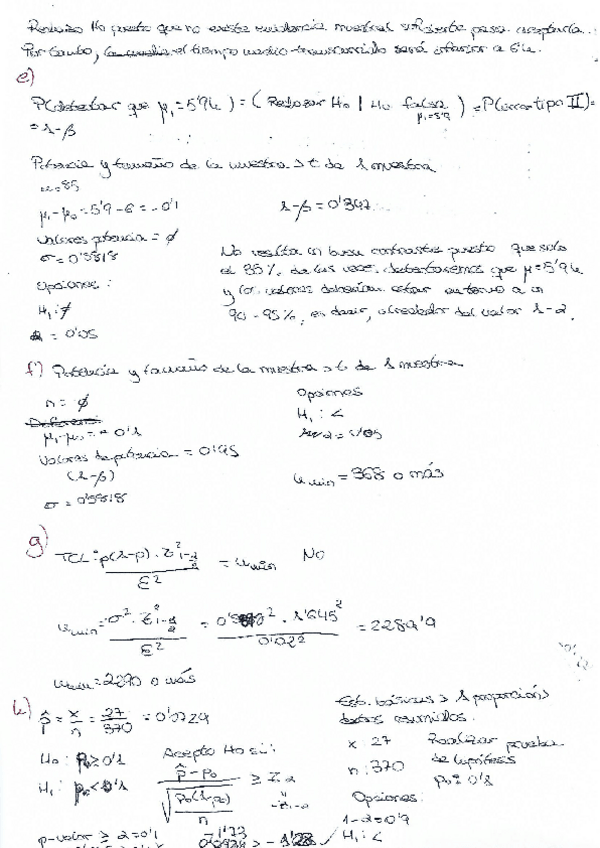 Rechazo Ho puesto que no existe evidencia muestral suficiente para aceptarla.
Por tanto, el tiempo medio transcurrido será inferior a 6h.
e)
P(detectar que μ₁=5'9h) = (Rechazar Ho | Ho falsa μ₁=5'9) = P(error tipo II) =
= 1-β
Potencia y tamaño de la muestra > t de 1 muestra
n=85
μ₁-μ₀ = 5'9-6 = -0'1
1-β = 0'347
Valores potencia = ∅
σ = 0'5818
Opciones:
H₁: ≠
α = 0'05
No resulta un buen contraste puesto que solo
el 35% de las veces detectaremos que μ=5'9h
y los valores deberían estar entorno a un
90-95%, es decir, alrededor del valor 1-α.
f) Potencia y tamaño de la muestra > t de 1 muestra
n = ∅
μ₁-μ₀ = -0'1
Valores de potencia = 0'95
(1-β)
σ = 0'5818
Opciones
H₁: <
n min = 368 o más
g)
TCL: p(1-p)·Z²1-α/2 / E² = n min No
n min = σ²·Z²1-α/2 / E² = ·1'645² / 0'02² = 2289'9
n min = 2290 o más
h)
p̂ = x/n = 27/370 = 0'0729
Ho: p₀ ≥ 0'1
H₁: p₀ < 0'1
Acepto Ho si:
p̂ - p₀ / √p₀(1-p₀)/n ≥ Zα
-Z1-α
p-valor ≥ α = 0'1
> -1'28
Est. básicas > 1 proporción >
datos resumidos.
x: 27
n: 370
Realizar prueba
de hipótesis
p₀ = 0'1
Opciones:
1-α = 0'9
H₁: <